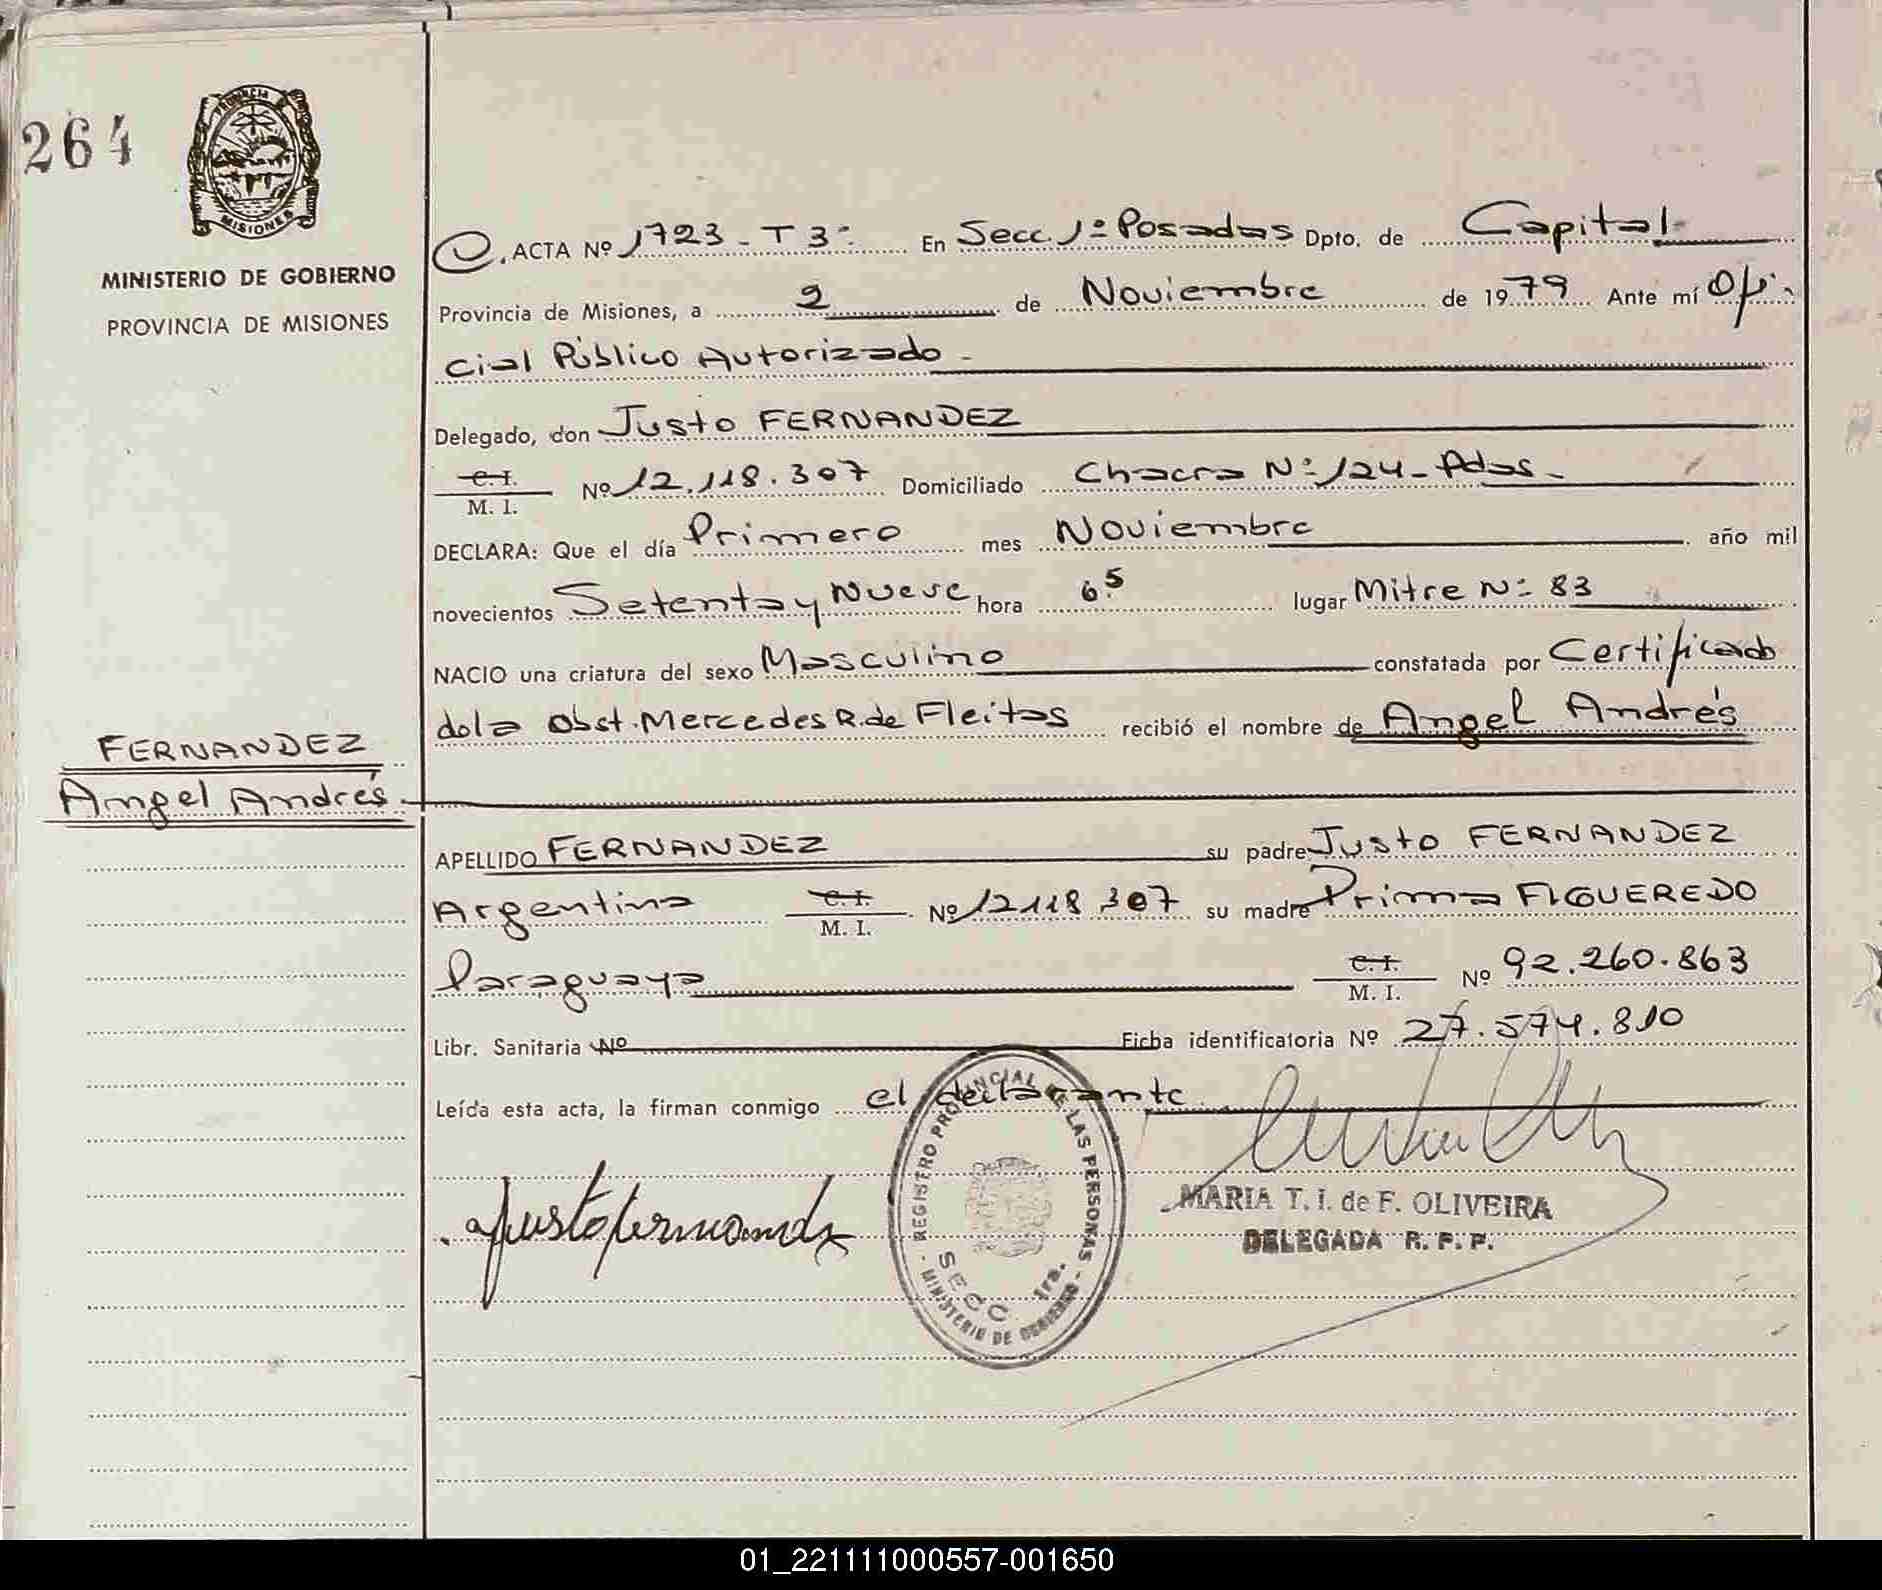 264
PROVINCIA DE
MISIONES
MINISTERIO DE GOBIERNO
PROVINCIA DE MISIONES
FERNANDEZ
Angel Andrés
ACTA Nº 1723 - T 3º En Secc. 1º Posadas Dpto. de Capital
Provincia de Misiones, a 2 de Noviembre de 1979 Ante mí Ofi-
cial Público Autorizado -
Delegado, don Justo FERNANDEZ
C. I.
M. I. Nº 12.118.307 Domiciliado Chacra Nº 124 - Pdas -
DECLARA: Que el día Primero mes Noviembre año mil
novecientos Setenta y Nueve hora 6⁵ lugar Mitre Nº 83
NACIO una criatura del sexo Masculino constatada por Certificado
de la Obst. Mercedes R. de Fleitas recibió el nombre de Angel Andrés
APELLIDO FERNANDEZ su padre Justo FERNANDEZ
Argentino C. I.
M. I. Nº 12118.307 su madre Prima FIGUEREDO
Paraguaya C. I.
M. I. Nº 92.260.863
Libr. Sanitaria Nº Ficha identificatoria Nº 27.574.810
Leída esta acta, la firman conmigo el declarante
Justo Fernandez
REGISTRO PROVINCIAL DE LAS PERSONAS
SECC. 1ra.
MINISTERIO DE GOBIERNO
MARIA T. I. de F. OLIVEIRA
DELEGADA R. P. P.
01_221111000557-001650